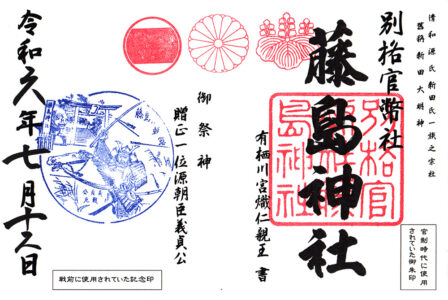 清和源氏新田氏一族之宗社
舊称新田大明神
別格官幣社
藤島神社
別格官
幣社藤
島神社
有栖川宮熾仁親王 書
官制時代に使用
されていた御朱印
御祭神
贈正一位源朝臣義貞公
令和六年七月十六日
戦前に使用されていた記念印